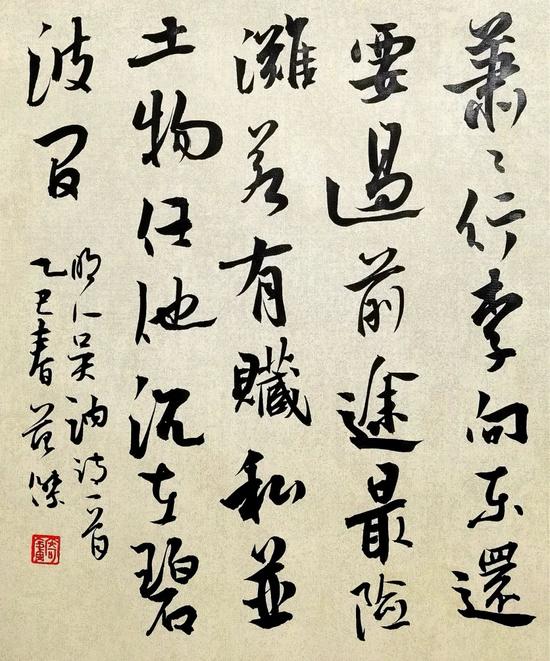 蕭〻行李向东還
要過前途最險
灘若有贓私並
土物任他沉在碧
波間
明人吳訥詩一首
乙巳春